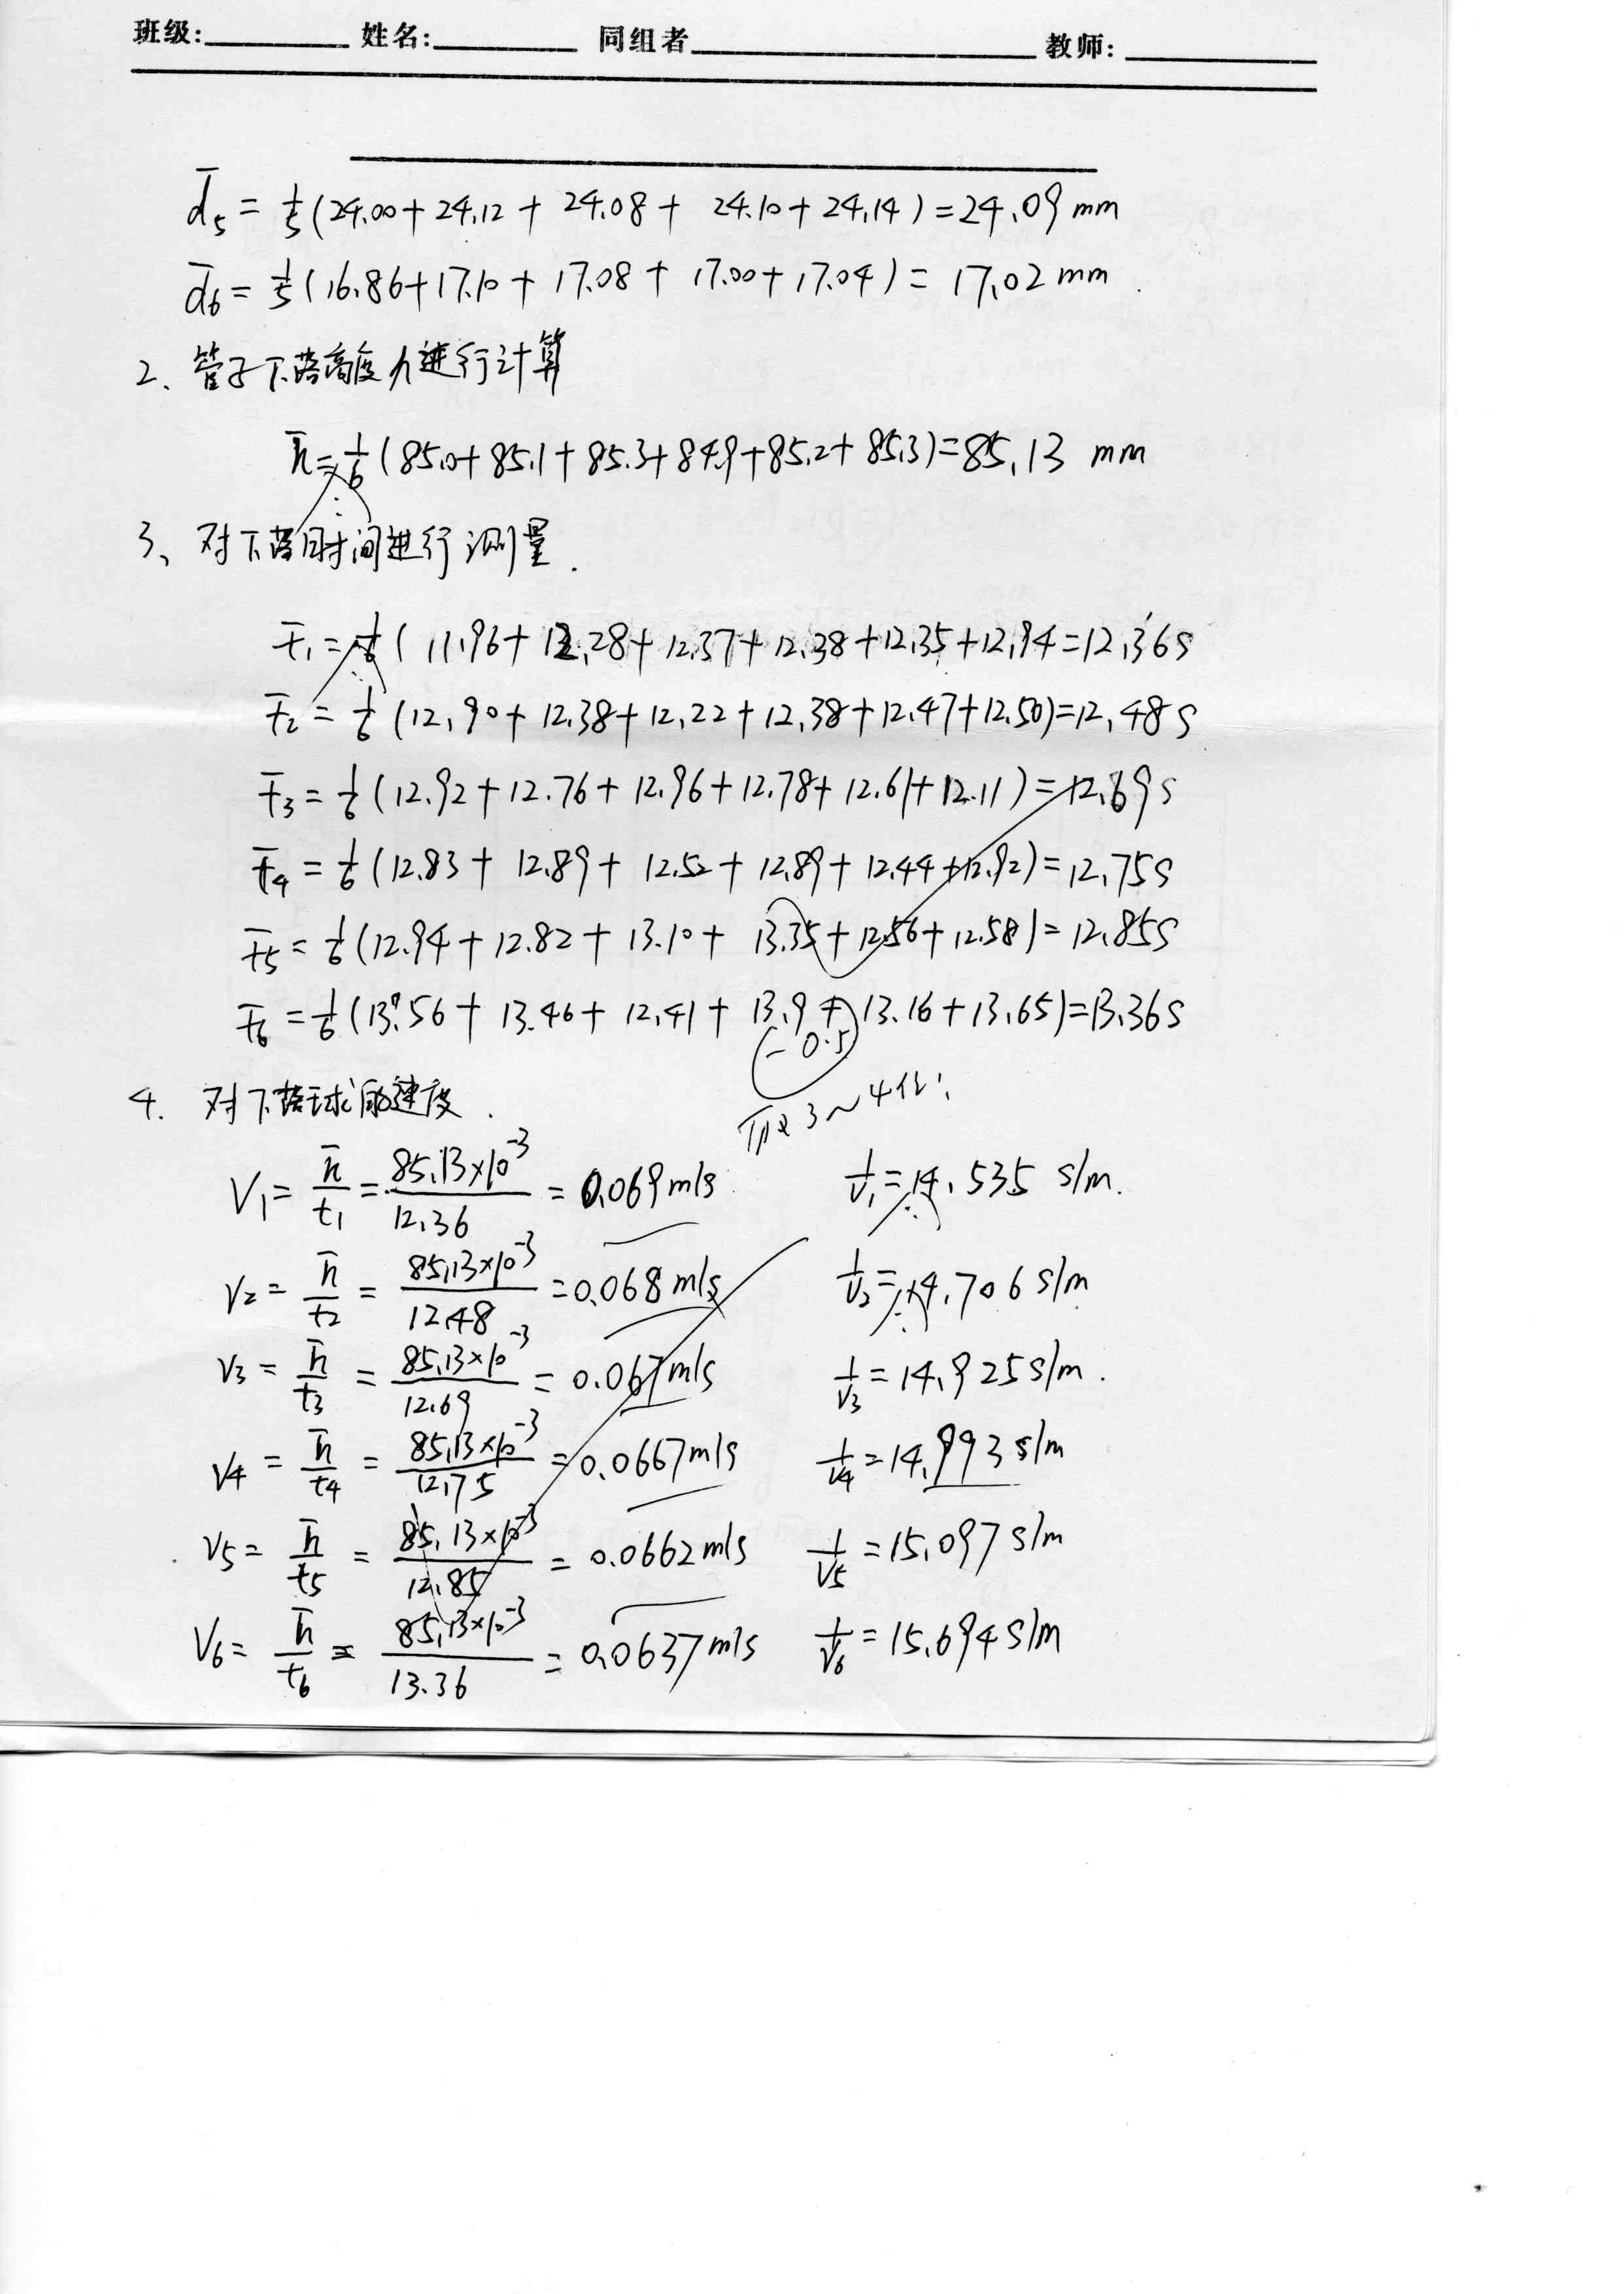 班级: 姓名: 同组者 教师:
d̄₅ = 1/5 (24.00+24.12+24.08+24.10+24.14) = 24.09 mm
d̄₆ = 1/5 (16.86+17.10+17.08+17.00+17.04) = 17.02 mm
2、管子下落高度h进行计算
h̄ = 1/6 (85.0+85.1+85.3+84.9+85.2+85.3) = 85.13 mm
3、对下落时间进行测量.
t̄₁ = 1/6 (11.96+12.28+12.37+12.38+12.35+12.94 = 12.36s
t̄₂ = 1/6 (12.90+12.38+12.22+12.38+12.47+12.50) = 12.48s
t̄₃ = 1/6 (12.92+12.76+12.96+12.78+12.61+12.11) = 12.69s
t̄₄ = 1/6 (12.83+12.89+12.52+12.89+12.44+12.92) = 12.75s
t̄₅ = 1/6 (12.94+12.82+13.10+13.35+12.56+12.58) = 12.85s
t̄₆ = 1/6 (13.56+13.46+12.41+13.9+13.16+13.65) = 13.36s
-0.5
3~4位!
4. 对下落球的速度.
V₁ = h̄/t₁ = 85.13×10⁻³/12.36 = 0.069m/s 1/V₁ = 14.535 s/m.
V₂ = h̄/t₂ = 85.13×10⁻³/12.48 = 0.068m/s 1/V₂ = 14.706 s/m
V₃ = h̄/t₃ = 85.13×10⁻³/12.69 = 0.067m/s 1/V₃ = 14.925 s/m.
V₄ = h̄/t₄ = 85.13×10⁻³/12.75 = 0.0667m/s 1/V₄ = 14.993 s/m
V₅ = h̄/t₅ = 85.13×10⁻³/12.85 = 0.0662m/s 1/V₅ = 15.097 s/m
V₆ = h̄/t₆ = 85.13×10⁻³/13.36 = 0.0637m/s 1/V₆ = 15.694 s/m